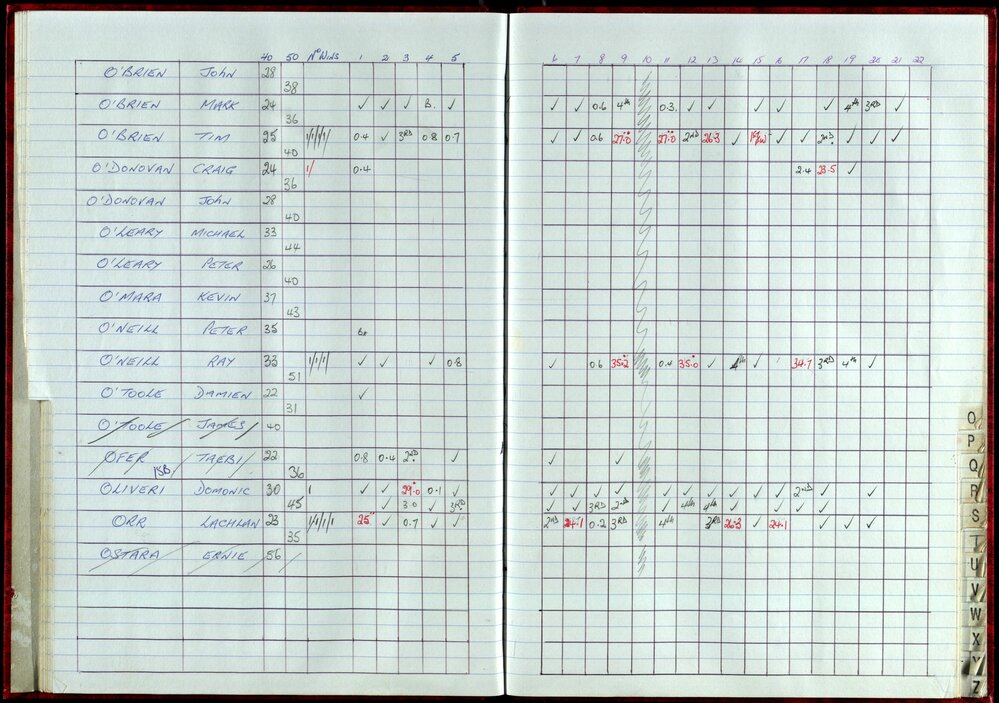 40 50 No WINS 1 2 3 4 5 6 7 8 9 10 11 12 13 14 15 16 17 18 19 20 21 22
O'BRIEN JOHN 28
38
O'BRIEN MARK 24 ✓ ✓ ✓ B. ✓ ✓ ✓ 0.6 4th 0.3. ✓ ✓ ✓ ✓ ✓ 4th 3RD ✓
36
O'BRIEN TIM 25 1/1/1/1 0.4 ✓ 3RD 0.8 0.7 ✓ ✓ 0.6 27.0 27.0 2ND 26.3 ✓ ✓ ✓ 2ND ✓ ✓ ✓
40
O'DONOVAN CRAIG 24 1/ 0.4 2.4 23.5 ✓
36
O'DONOVAN JOHN 28
40
O'LEARY MICHAEL 33
44
O'LEARY PETER 26
40
O'MARA KEVIN 37
43
O'NEILL PETER 35
O'NEILL RAY 33 1/1/1/ ✓ ✓ ✓ 0.8 ✓ 0.6 35.2 0.4 35.0 ✓ 4th ✓ 34.7 3RD 4th ✓
51
O'TOOLE DAMIEN 22 ✓
31
O'TOOLE JAMES 40
OFER TAEBI 22 0.8 0.4 2ND ✓ ✓ ✓
15B 36
OLIVERI DOMONIC 30 1 ✓ ✓ 29.0 0.1 ✓ ✓ ✓ ✓ ✓ ✓ ✓ ✓ ✓ ✓ ✓ 2nd ✓ ✓
45 ✓ 3.0 ✓ 3RD ✓ ✓ 3RD 2nd ✓ 4th 4th ✓ ✓ ✓ ✓ ✓
ORR LACHLAN 23 1/1/1/1 25 ✓ 0.7 ✓ ✓ 2ND 24.1 0.2 3RD 4th 3RD 26.3 ✓ 24.1 ✓ ✓ ✓
35
OSTARA ERNIE 56
O
P
Q
R
S
T
U
V
W
X
Y
Z